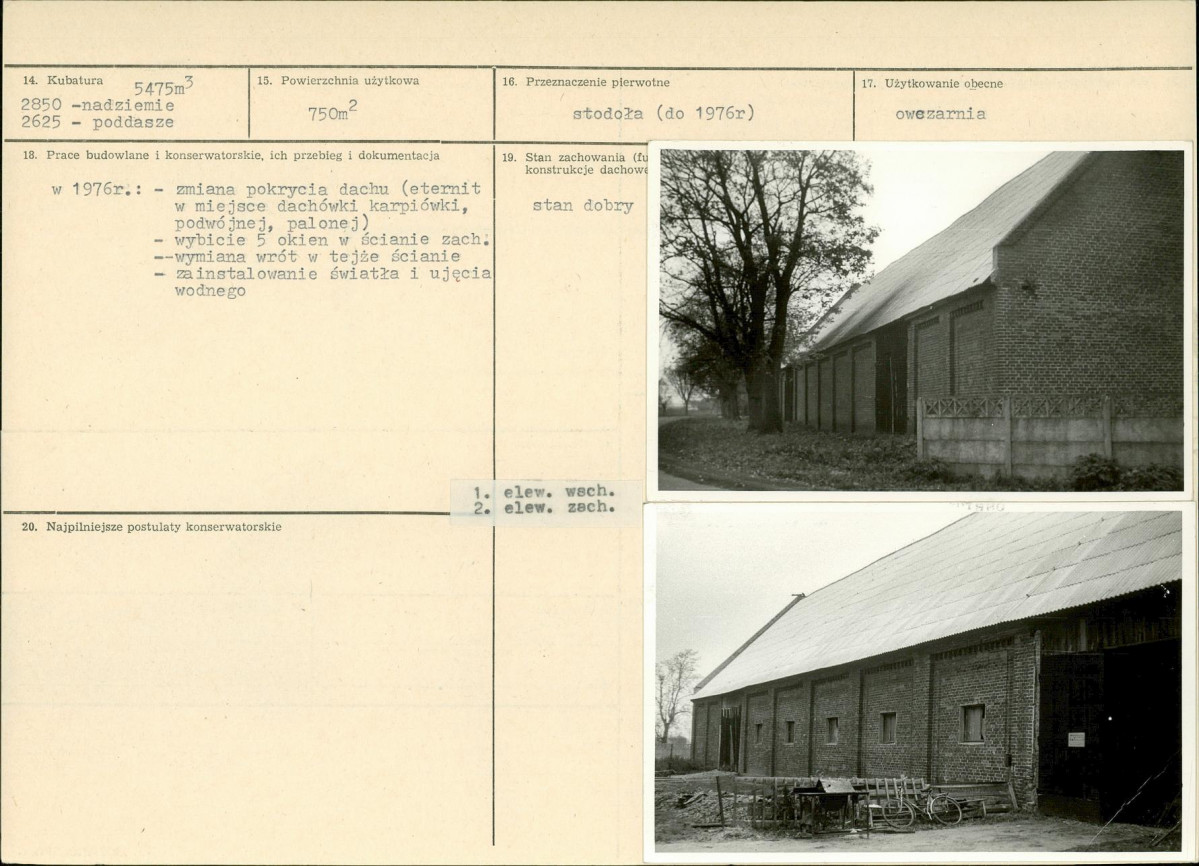 14. Kubatura 5475m³
2850 -nadziemie
2625 - poddasze
15. Powierzchnia użytkowa
750m²
16. Przeznaczenie pierwotne
stodoła (do 1976r)
17. Użytkowanie obecne
owczarnia
18. Prace budowlane i konserwatorskie, ich przebieg i dokumentacja
w 1976r.: - zmiana pokrycia dachu (eternit
w miejsce dachówki karpiówki,
podwójnej, palonej)
- wybicie 5 okien w ścianie zach.
--wymiana wrót w tejże ścianie
- zainstalowanie światła i ujęcia
wodnego
19. Stan zachowania (fu
konstrukcje dachowe
stan dobry
1. elew. wsch.
2. elew. zach.
20. Najpilniejsze postulaty konserwatorskie